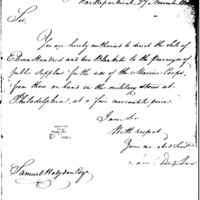 War Department, 29 November 1800
Sir,
You are hereby authorised to direct the sale of
Eleven Hundred and two Blankets to the Purveyor of
public Supplies for the use of the Marine Corps,
from those on hand in the military stores at
Philadelphia, at a fair mercantile price.
I am Sir
With respect,
Your
Samuel Hodgdon Esqr